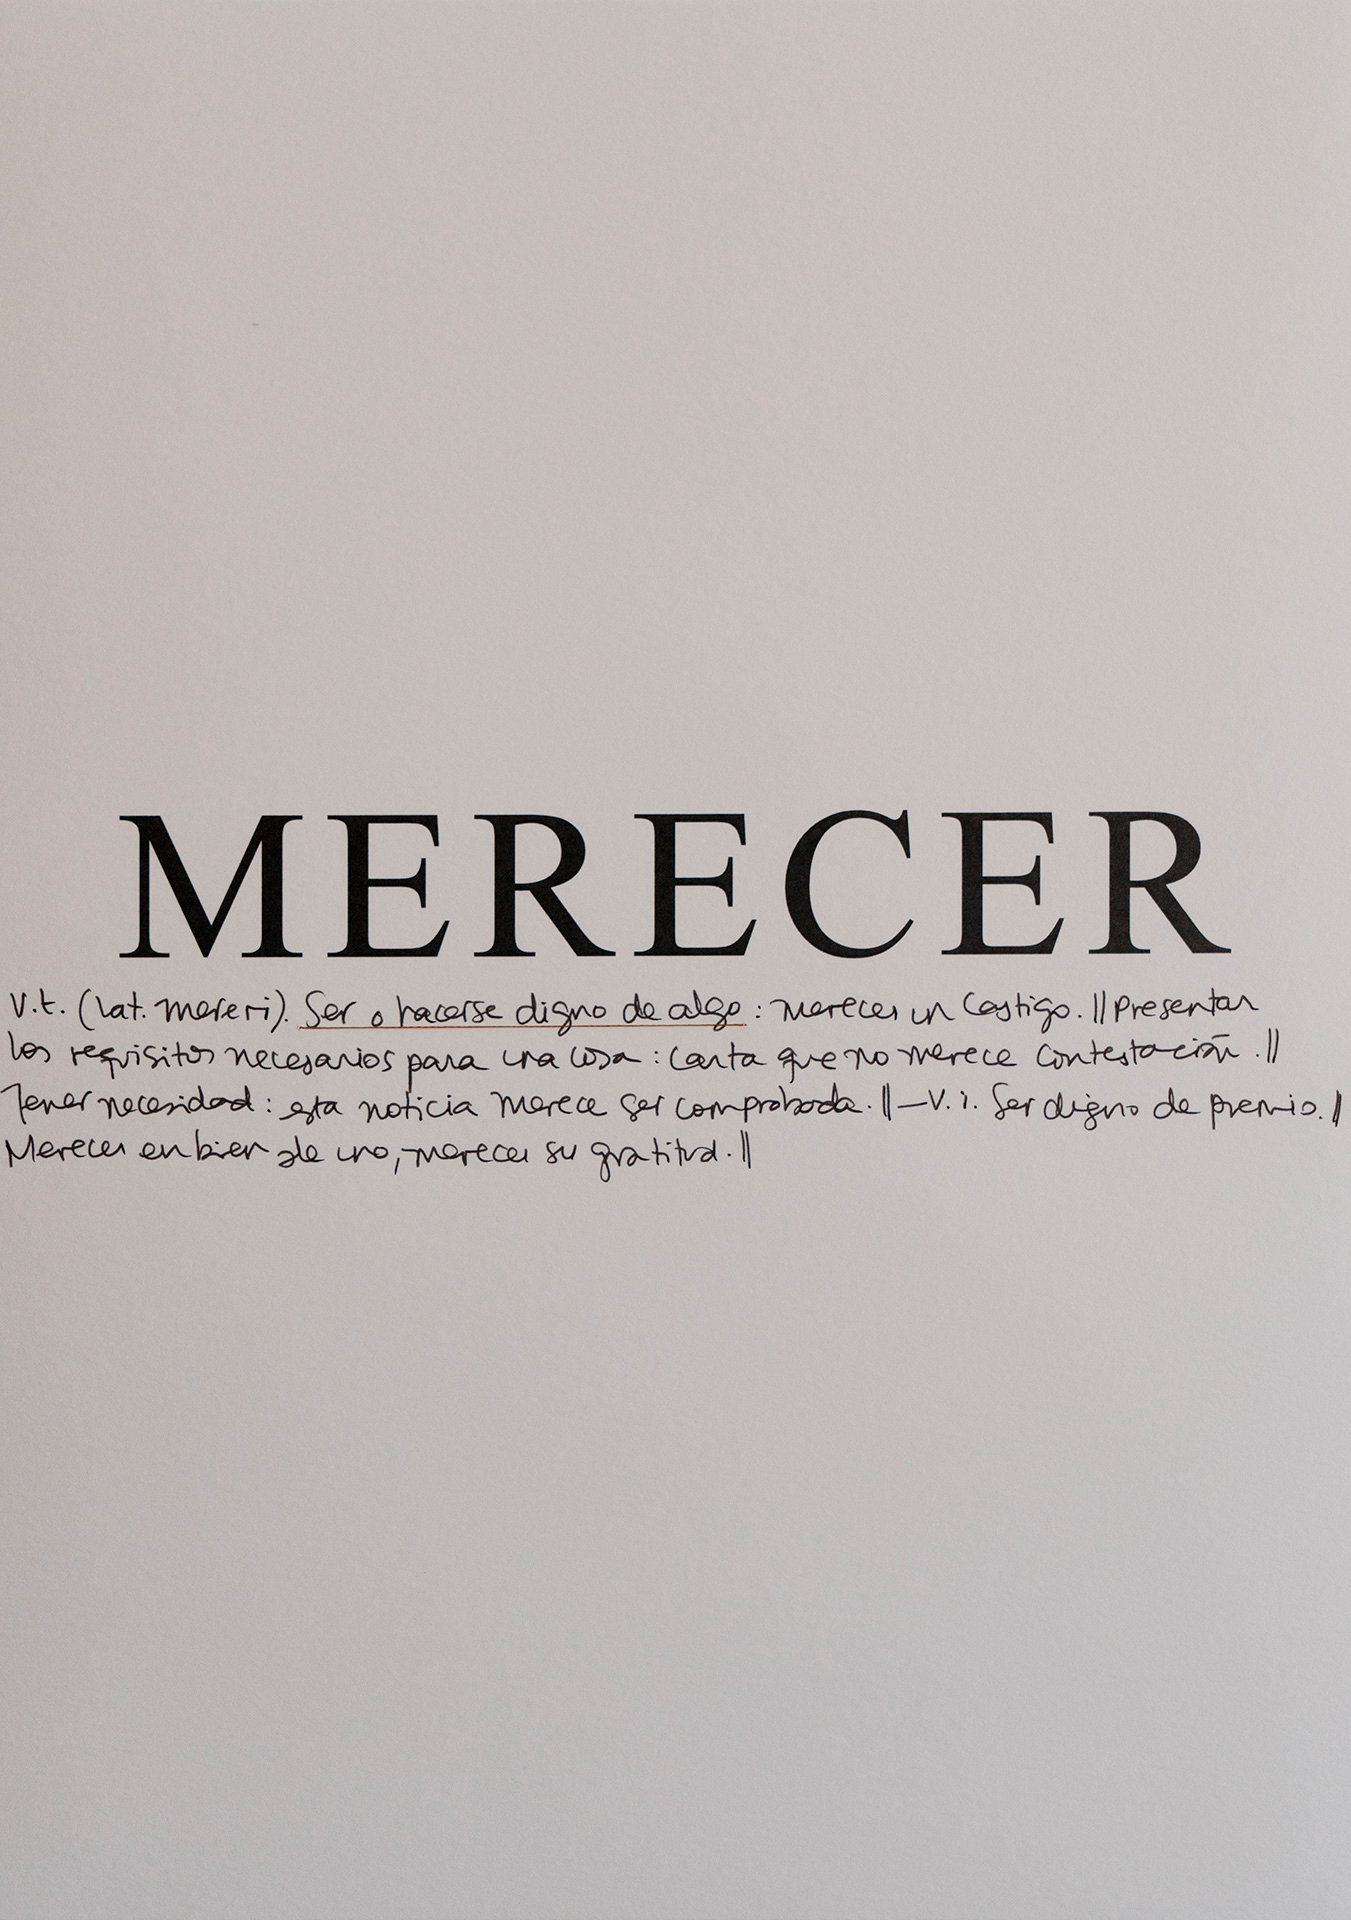 MERECER
V.t. (Lat. mereri). Ser o hacerse digno de algo : merecer un Castigo. || Presentar
los requisitos necesarios para una cosa : Carta que no merece contestación. ||
Tener necesidad : esta noticia merece ser comprobada. || — V. i. Ser digno de premio. ||
Merecer en bien de uno, merecer su gratitud. ||